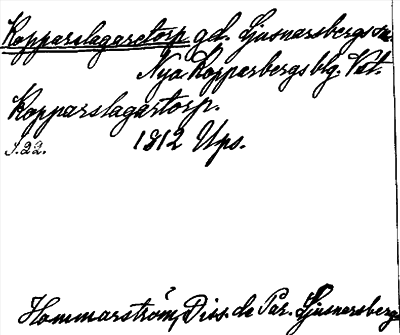 Kopparslagaretorp gd. Ljusnarsbergs sn
Nya Kopparbergs blg. Vst.
Kopparslagartorp.
S. 22. 1812 Ups.
Hammarström, Diss. de Par. Ljusnarsberg